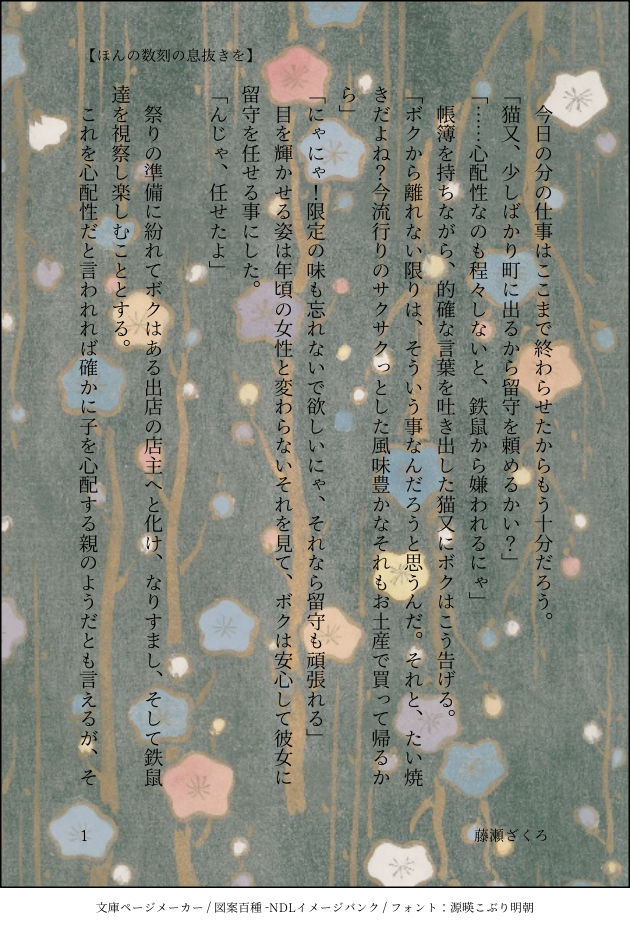 【ほんの数刻の息抜きを】
　今日の分の仕事はここまで終わらせたからもう十分だろう。
「猫又、少しばかり町に出るから留守を頼めるかい？」
「……心配性なのも程々しないと、鉄鼠から嫌われるにゃ」
　帳簿を持ちながら、的確な言葉を吐き出した猫又にボクはこう告げる。
「ボクから離れない限りは、そういう事なんだろうと思うんだ。それと、たい焼
きだよね？今流行りのサクサクっとした風味豊かなそれもお土産で買って帰るか
ら」
「にゃにゃ！限定の味も忘れないで欲しいにゃ、それなら留守も頑張れる」
　目を輝かせる姿は年頃の女性と変わらないそれを見て、ボクは安心して彼女に
留守を任せる事にした。
「んじゃ、任せたよ」
　祭りの準備に紛れてボクはある出店の店主へと化け、なりすまし、そして鉄鼠
達を視察し楽しむこととする。
　これを心配性だと言われれば確かに子を心配する親のようだとも言えるが、そ
藤瀬ざくろ
1
文庫ページメーカー / 図案百種 -NDLイメージバンク / フォント：源暎こぶり明朝